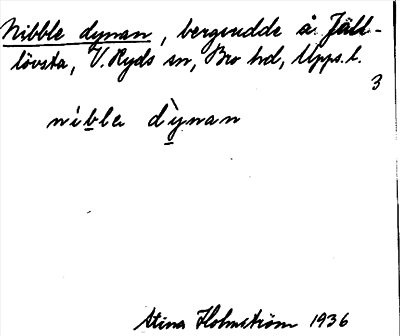 Nibble dynan, bergudde å Jäll-
lövsta, V. Ryds sn, Bro hd, Upps. l.
3
nìb̲le dỳ̲nan
Stina Holmström 1936